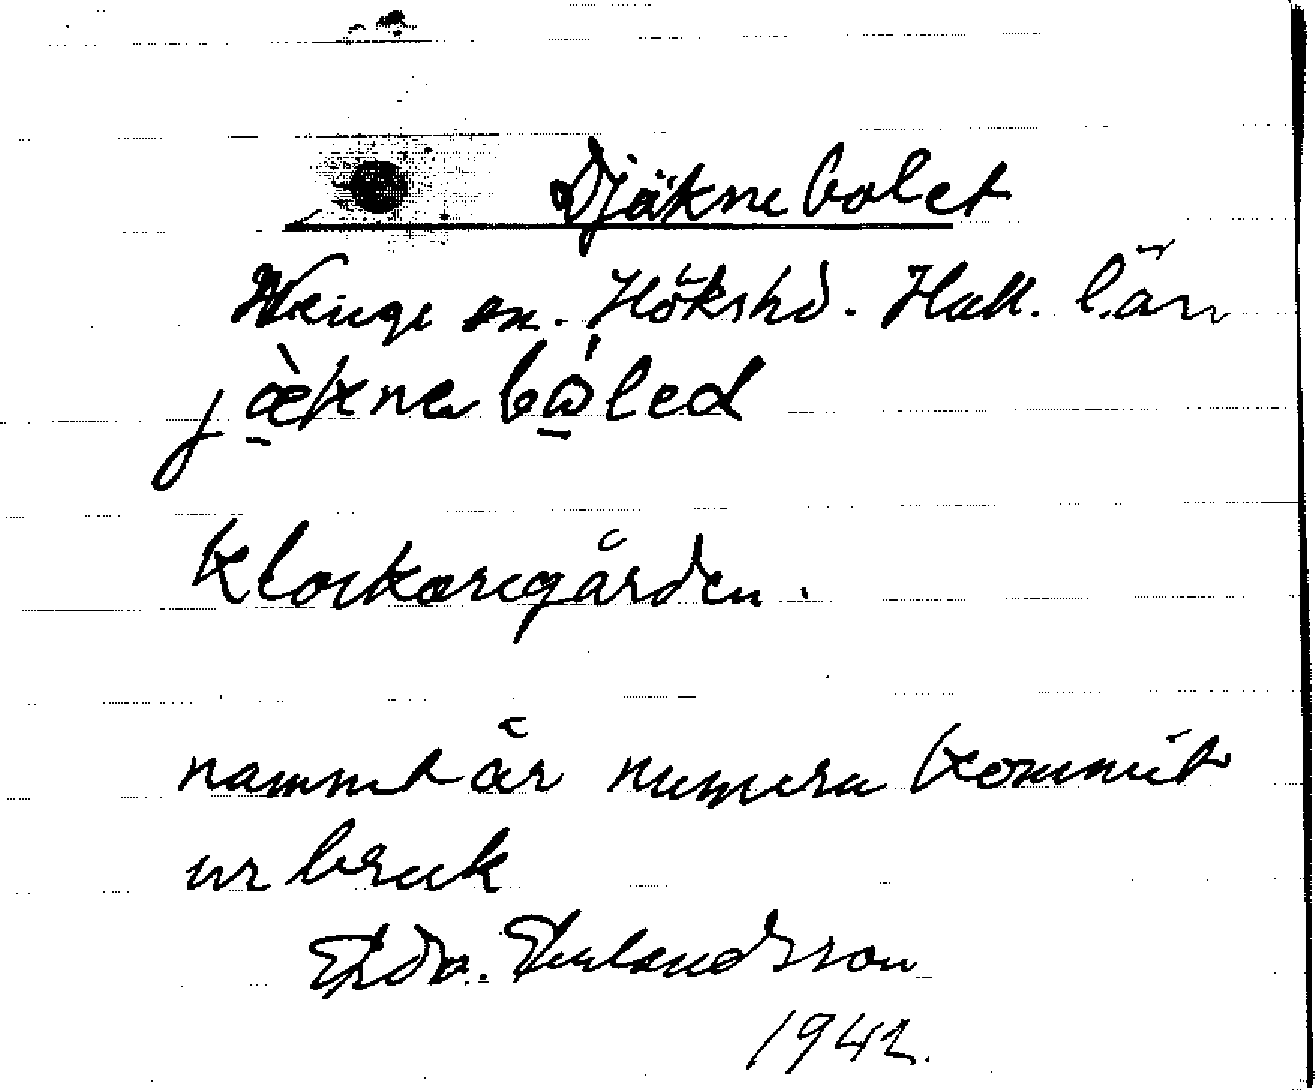 Djäknebolet
Weinge sn. Hökshd. Hall. län
jæ̱̀knebώ̱led
Klockaregården.
namnet är numera kommit
ur bruk
Edv. Erlandsson
1942.